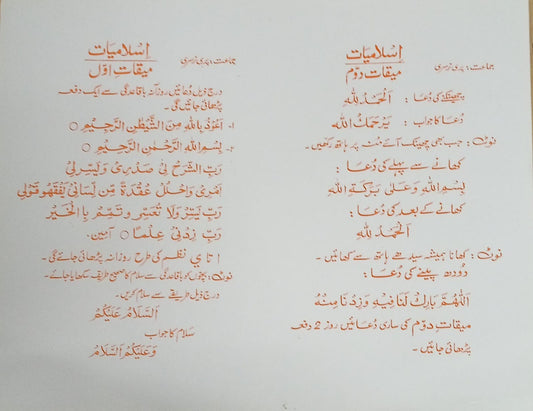 اسلامیات
جماعت: پری نرسری
میقات دوّم
چھینکنے کی دُعا : اَلْحَمْدُ لِلّٰهِ
دُعا کا جواب : یَرْحَمُكَ اللّٰه
نوٹ: جب بھی چھینک آئے مُنہ پر ہاتھ رکھیں۔
کھانے سے پہلے کی دُعا :
بِسْمِ اللّٰهِ وَعَلٰی بَرَکَةِ اللّٰهِ
کھانے کے بعد کی دُعا :
اَلْحَمْدُ لِلّٰهِ
نوٹ: کھانا ہمیشہ سیدھے ہاتھ سے کھائیں۔
دُودھ پینے کی دُعا :
اَللّٰهُمَّ بَارِكْ لَنَا فِیْهِ وَزِدْ نَا مِنْهُ
میقات دوّم کی ساری دُعائیں روز 2 دفعہ
پڑھائی جائیں۔
اسلامیات
جماعت: پری نرسری
میقات اوّل
درج ذیل دُعائیں روزانہ باقاعدگی سے ایک دفعہ
پڑھائی جائیں گی۔
۱۔ اَعُوْذُ بِاللّٰهِ مِنَ الشَّیْطٰنِ الرَّجِیْمِ ○
۲۔ بِسْمِ اللّٰهِ الرَّحْمٰنِ الرَّحِیْمِ ○
رَبِّ اشْرَحْ لِیْ صَدْرِیْ وَیَسِّرْ لِیْ
اَمْرِیْ وَاحْلُلْ عُقْدَةً مِّن لِّسَانِیْ یَفْقَهُو قَوْلِی
رَبِّ یَسِّرْ وَلَا تُعَسِّر وَتَمِّمْ بِا الْخَیْر
رَبِّ زِدْنِی عِلْمًا ○ آمین۔
ا تا ي نظم کی طرح روزانہ پڑھائی جائے گی۔
نوٹ: بچّوں کو باقاعدگی سے سلام کا صحیح طریقہ سکھایا جائے۔
درج ذیل طریقے سے سلام کریں۔
اَلسَّلَامُ عَلَیْکُمْ
سلام کا جواب
وَعَلَیْکُمُ السَّلَامُ